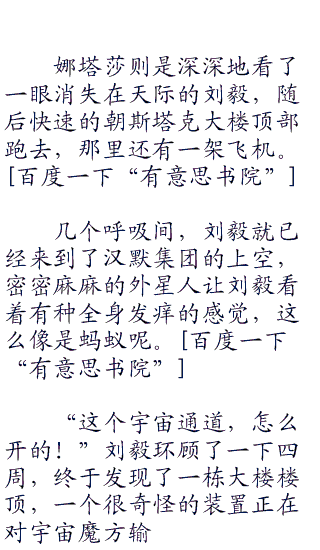 娜塔莎则是深深地看了
一眼消失在天际的刘毅，随
后快速的朝斯塔克大楼顶部
跑去，那里还有一架飞机。
[百度一下“有意思书院”]
几个呼吸间，刘毅就已
经来到了汉默集团的上空，
密密麻麻的外星人让刘毅看
着有种全身发痒的感觉，这
么像是蚂蚁呢。[百度一下
“有意思书院”]
“这个宇宙通道，怎么
开的！”刘毅环顾了一下四
周，终于发现了一栋大楼楼
顶，一个很奇怪的装置正在
对宇宙魔方输